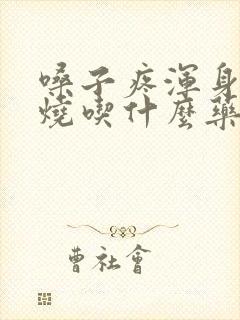 嗓子疼渾身
燒喫什麼藥
曹社會